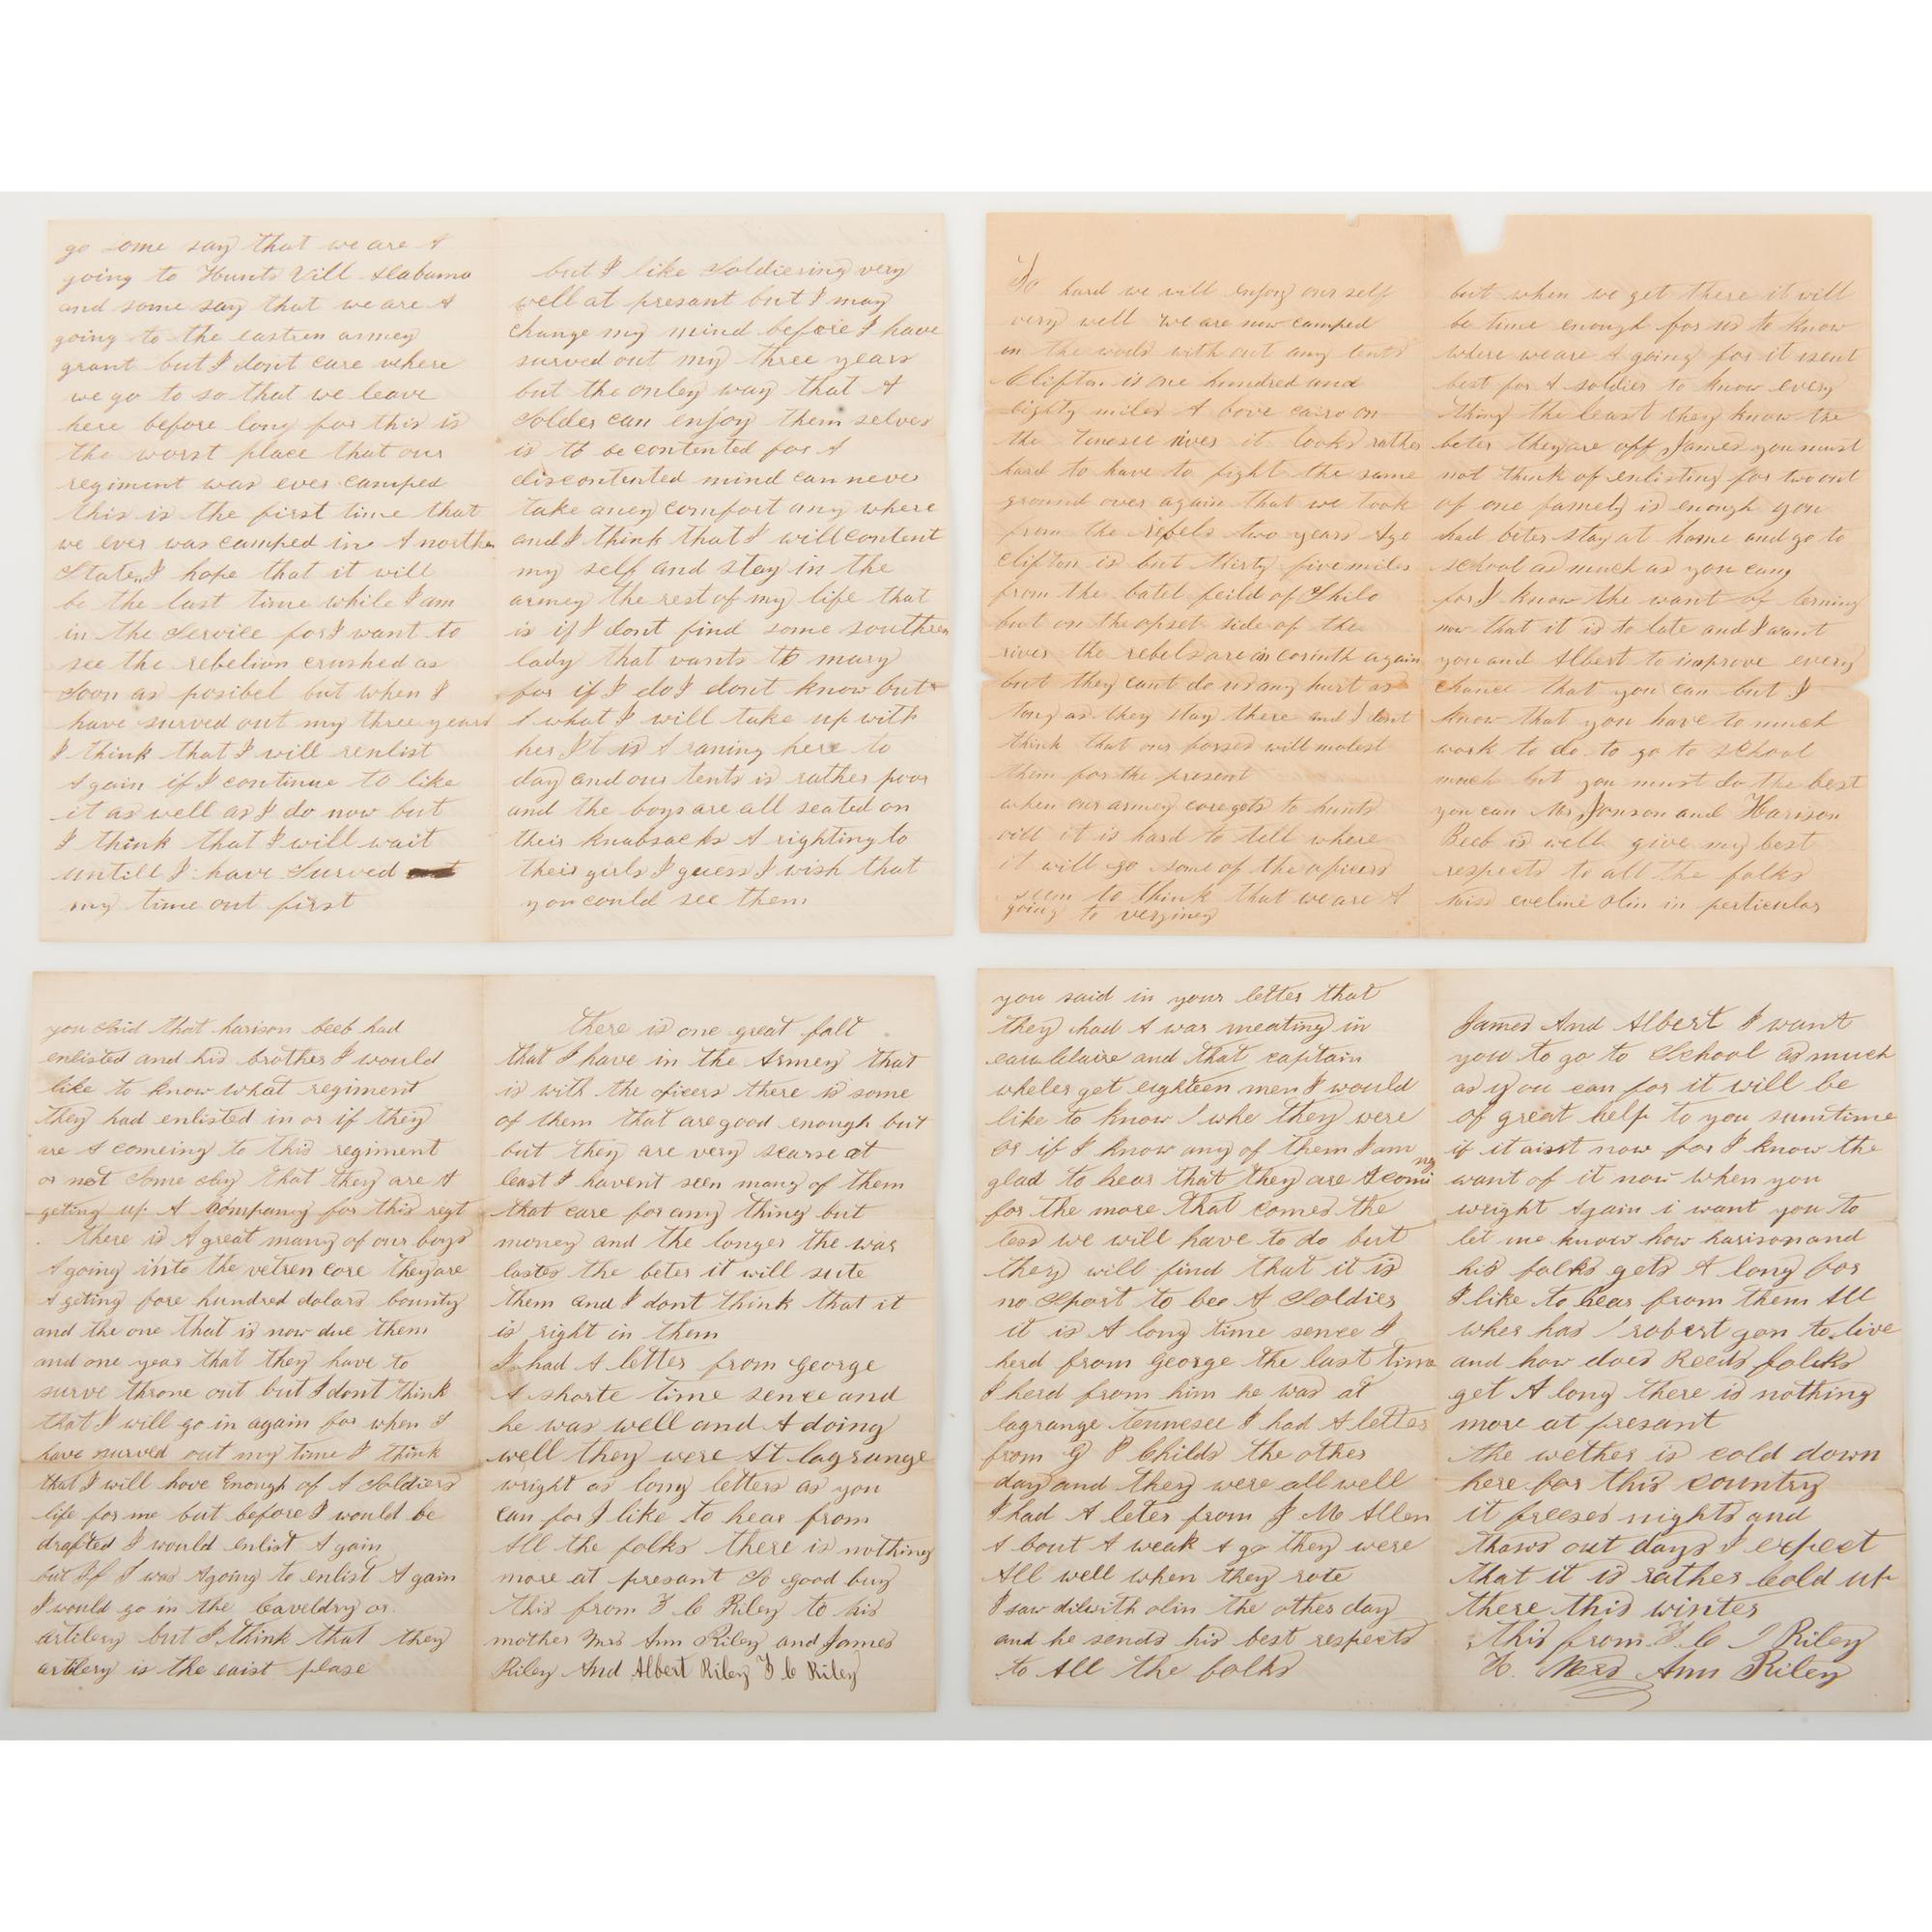 go some say that we are A
going to Hunts Vill Alabama
and some say that we are A
going to the eastren armey
grant but I dont care where
we go to so that we leave
here before long for this is
the worst place that our
regiment was ever camped
this is the first time that
we ever was camped in A northen
State I hope that it will
be the last time while I am
in the Service for I want to
see the rebelion crushed as
Soon as posibel but when I
have surved out my three years
I think that I will renlist
Again if I continue to like
it as well as I do now but
I think that I will wait
untill I have Surved
my time out first
but I like Soldiering very
well at presant but I may
change my mind before I have
surved out my three years
but the onley way that A
Solder can enjoy them selves
is to be contented for A
discontented mind can never
take aney comfort any where
and I think that I will content
my self and stay in the
armey the rest of my life that
is if I dont find some southren
lady that wants to mary
for if I do I dont know but
A what I will take up with
her It is A raning here to
day and our tents is rather poor
and the boys are all seated on
their knabsacks A righting to
their girls I guess I wish that
you could see them
So hard we will enjoy our self
very well We are now camped
in the woods with out any tents
Clifton is one hundred and
eighty miles A bove cairo on
the tenesee river it looks rather
hard to have to fight the same
ground over again that we took
from the rebels two years Ago
Clifton is but thirty five miles
from the batel feild of Shilo
but on the opset side of the
river the rebels are in corinth again
but they cant do us any hurt as
long as they stay there and I dont
think that our forses will molest
them for the present
when our armey core gets to hunts
vill it is hard to tell where
it will go some of the oficers
seem to think that we are A
going to verginey
but when we get there it will
be time enough for us to know
where we are A going for it isent
best for A soldier to know every
thing the least they know the
beter they are off James you must
not think of enlisting for two out
of one famely is enough you
had beter stay at home and go to
school as much as you can
for I know the want of lerning
now that it is to late and I want
you and Albert to improve every
chance that you can but I
know that you have to much
work to do to go to school
much but you must do the best
you can Mr Jonson and Harison
Beeb is well give my best
respects to all the folks
miss eveline olin in perticular
you said that harison beeb had
enlisted and his brother I would
like to know what regiment
they had enlisted in or if they
are A comeing to this regiment
or not Some say that they are A
geting up A Company for this regt
There is A great many of our boys
A going into the vetren core they are
A geting fore hundred dolars bounty
and the one that is now due them
and one year that they have to
surve throne out but I dont think
that I will go in again for when I
have surved out my time I think
that I will have Enough of A Soldiers
life for me but before I would be
drafted I would enlist A gain
but If I was Agoing to enlist A gain
I would go in the Caveldry or
artilery but I think that they
artilery is the eaist plase
there is one great falt
that I have in the Armey that
is with the oficers there is some
of them that are good enough but
but they are very scarse at
least I havent seen many of them
that care for any thing but
money and the longer the war
lastes the beter it will sute
them and I dont think that it
is right in them
I had A letter from George
A shorte time sence and
he was well and A doing
well they were At lagrange
wright as long letters as you
can for I like to hear from
All the folks there is nothing
more at presant So good buy
this from F C Riley to his
mother Mrs Ann Riley and James
Riley And Albert Riley F C Riley
you said in your letter that
they had A war meating in
eauclaire and that captain
wheler get eighteen men I would
like to know whe they were
or if I know any of them I am
glad to hear that they are A coming
for the more that comes the
less we will have to do but
they will find that it is
no Sport to bee A Soldier
it is A long time sence I
herd from George the last time
I herd from him he was at
lagrange tennesee I had A letter
from G P Childs the other
day and they were all well
I had A leter from J M Allen
A bout A weak A go they were
All well when they rote
I saw dilwith olin the other day
and he sends his best respects
to All the folks
James And Albert I want
you to go to School as much
as you can for it will be
of great help to you sumtime
if it aint now for I know the
want of it now when you
wright Again i want you to
let me know how harison and
his folks gets A long for
I like to hear from them All
wher has robert gon to live
and how does Reeds folks
get A long there is nothing
more at presant
the wether is cold down
here for this country
it freeses nights and
thaws out days I expect
that it is rather Cold up
there this winter
this from F C Riley
To Mrs Ann Riley